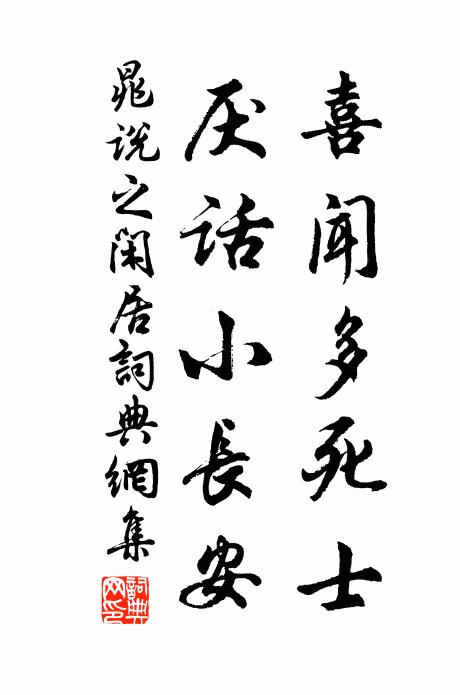 喜闻多死士
厌话小長安
晁说之闲居詞典網集
詞典網印